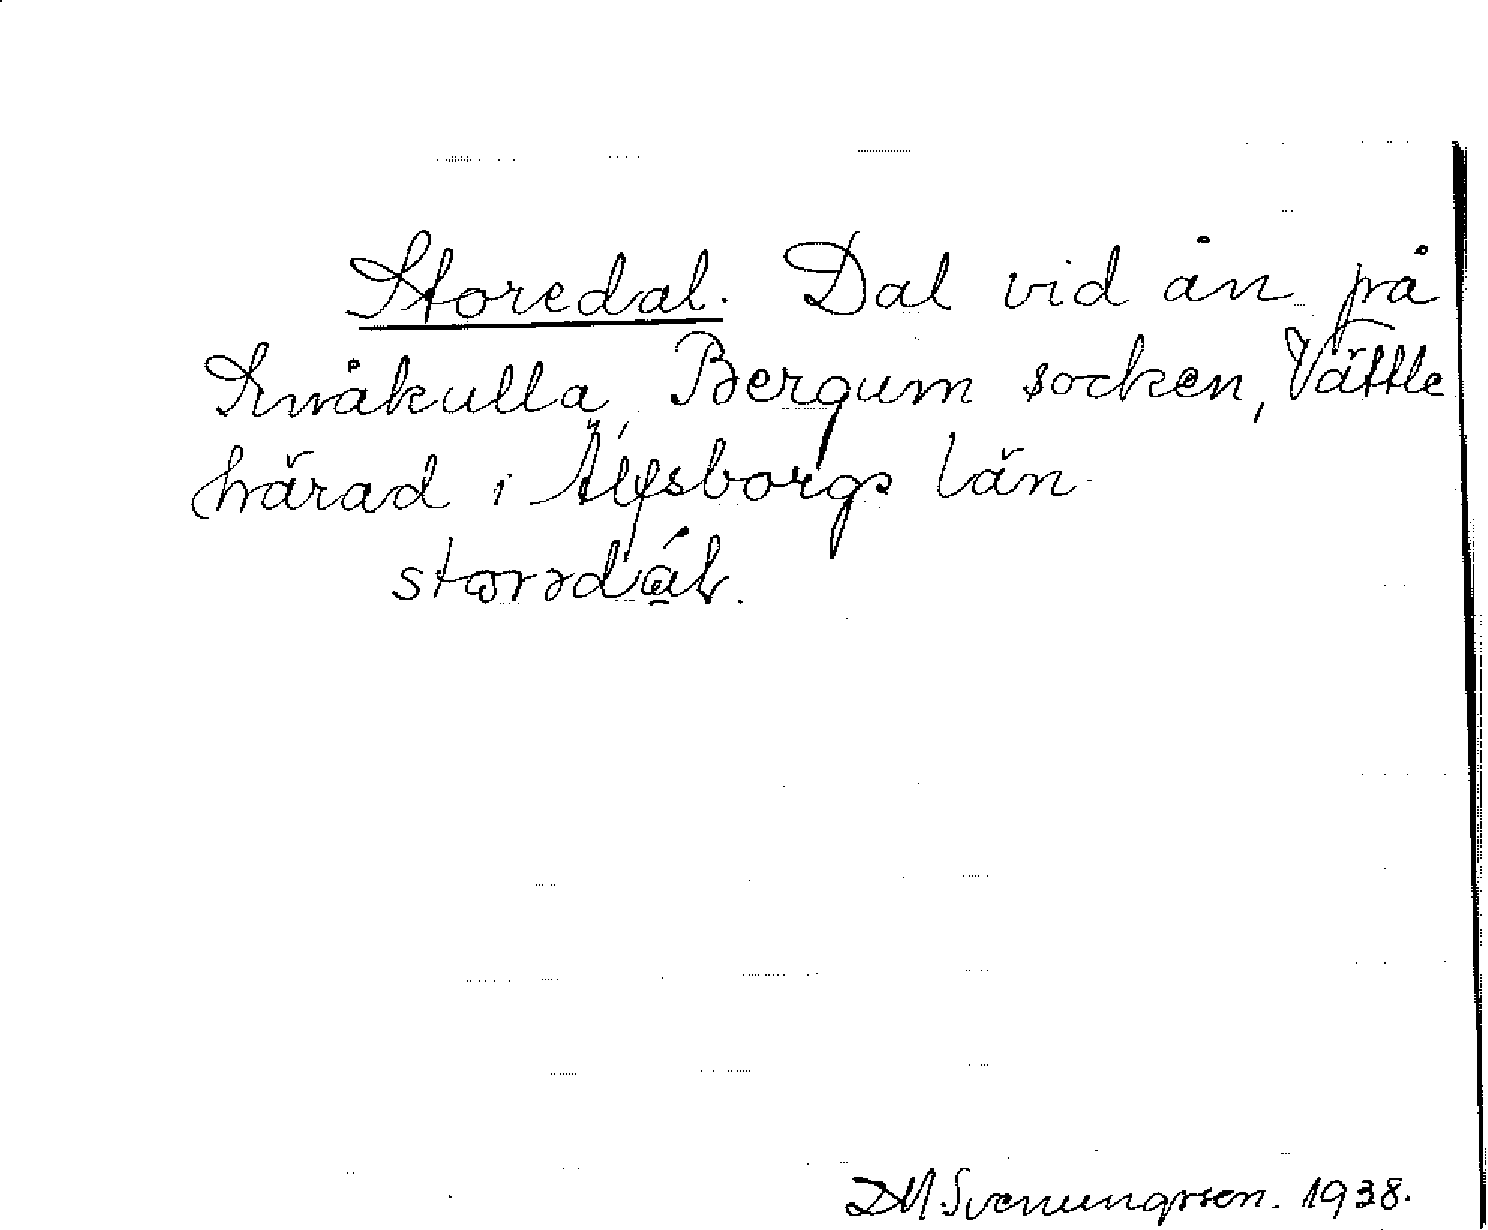 Storedal. Dal vid ån på
Knåkulla, Bergum socken, Vättle
härad i Älfsborgs län
DM Svenungsson. 1938.